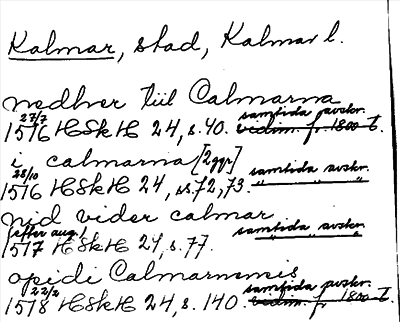 Kalmar, stad, Kalmar l.
nedhver tiil Calmarna
27/7 samtida avskr.
1516 HSkH 24, s. 40. vidim. fr. 1800-t.
i calmarna [2ggr]
28/10 samtida avskr.
1516 HSkH 24, ss. 72, 73. " " "
nid vider calmar
(efter aug.) samtida avskr.
1517 HSkH 24, s. 77. " " "
opidi Calmarnensis
22/2 samtida avskr.
1518 HSkH 24, s. 140. vidim. fr. 1800-t.